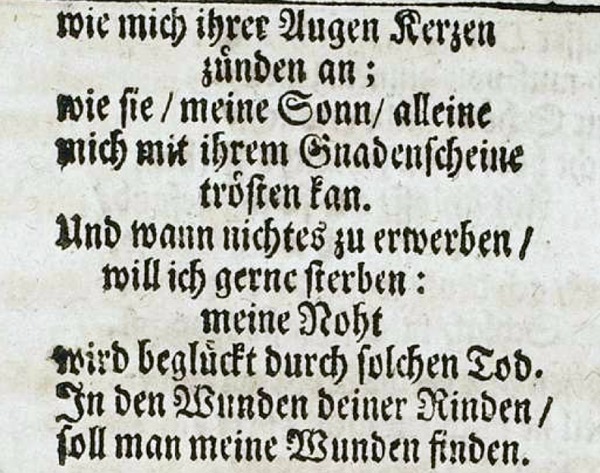 wie mich ihrer Augen Kerzen
zünden an;
wie sie / meine Sonn / alleine
mich mit ihrem Gnadenscheine
trösten kan.
Und wann nichtes zu erwerben /
will ich gerne sterben:
meine Noht
wird beglückt durch solchen Tod.
In den Wunden deiner Rinden /
soll man meine Wunden finden.